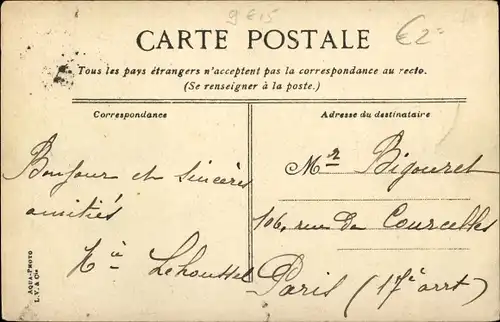 9 €15
€2-
CARTE POSTALE
Tous les pays étrangers n'acceptent pas la correspondance au recto.
(Se renseigner à la poste.)
Correspondance
Bonjour et sincères
amitiés
Lehoussel
Adresse du destinataire
Mr Bigouret
106, rue de Courcelles
Paris (17e arrt)
AQUA-PHOTO
L.V. & Cie